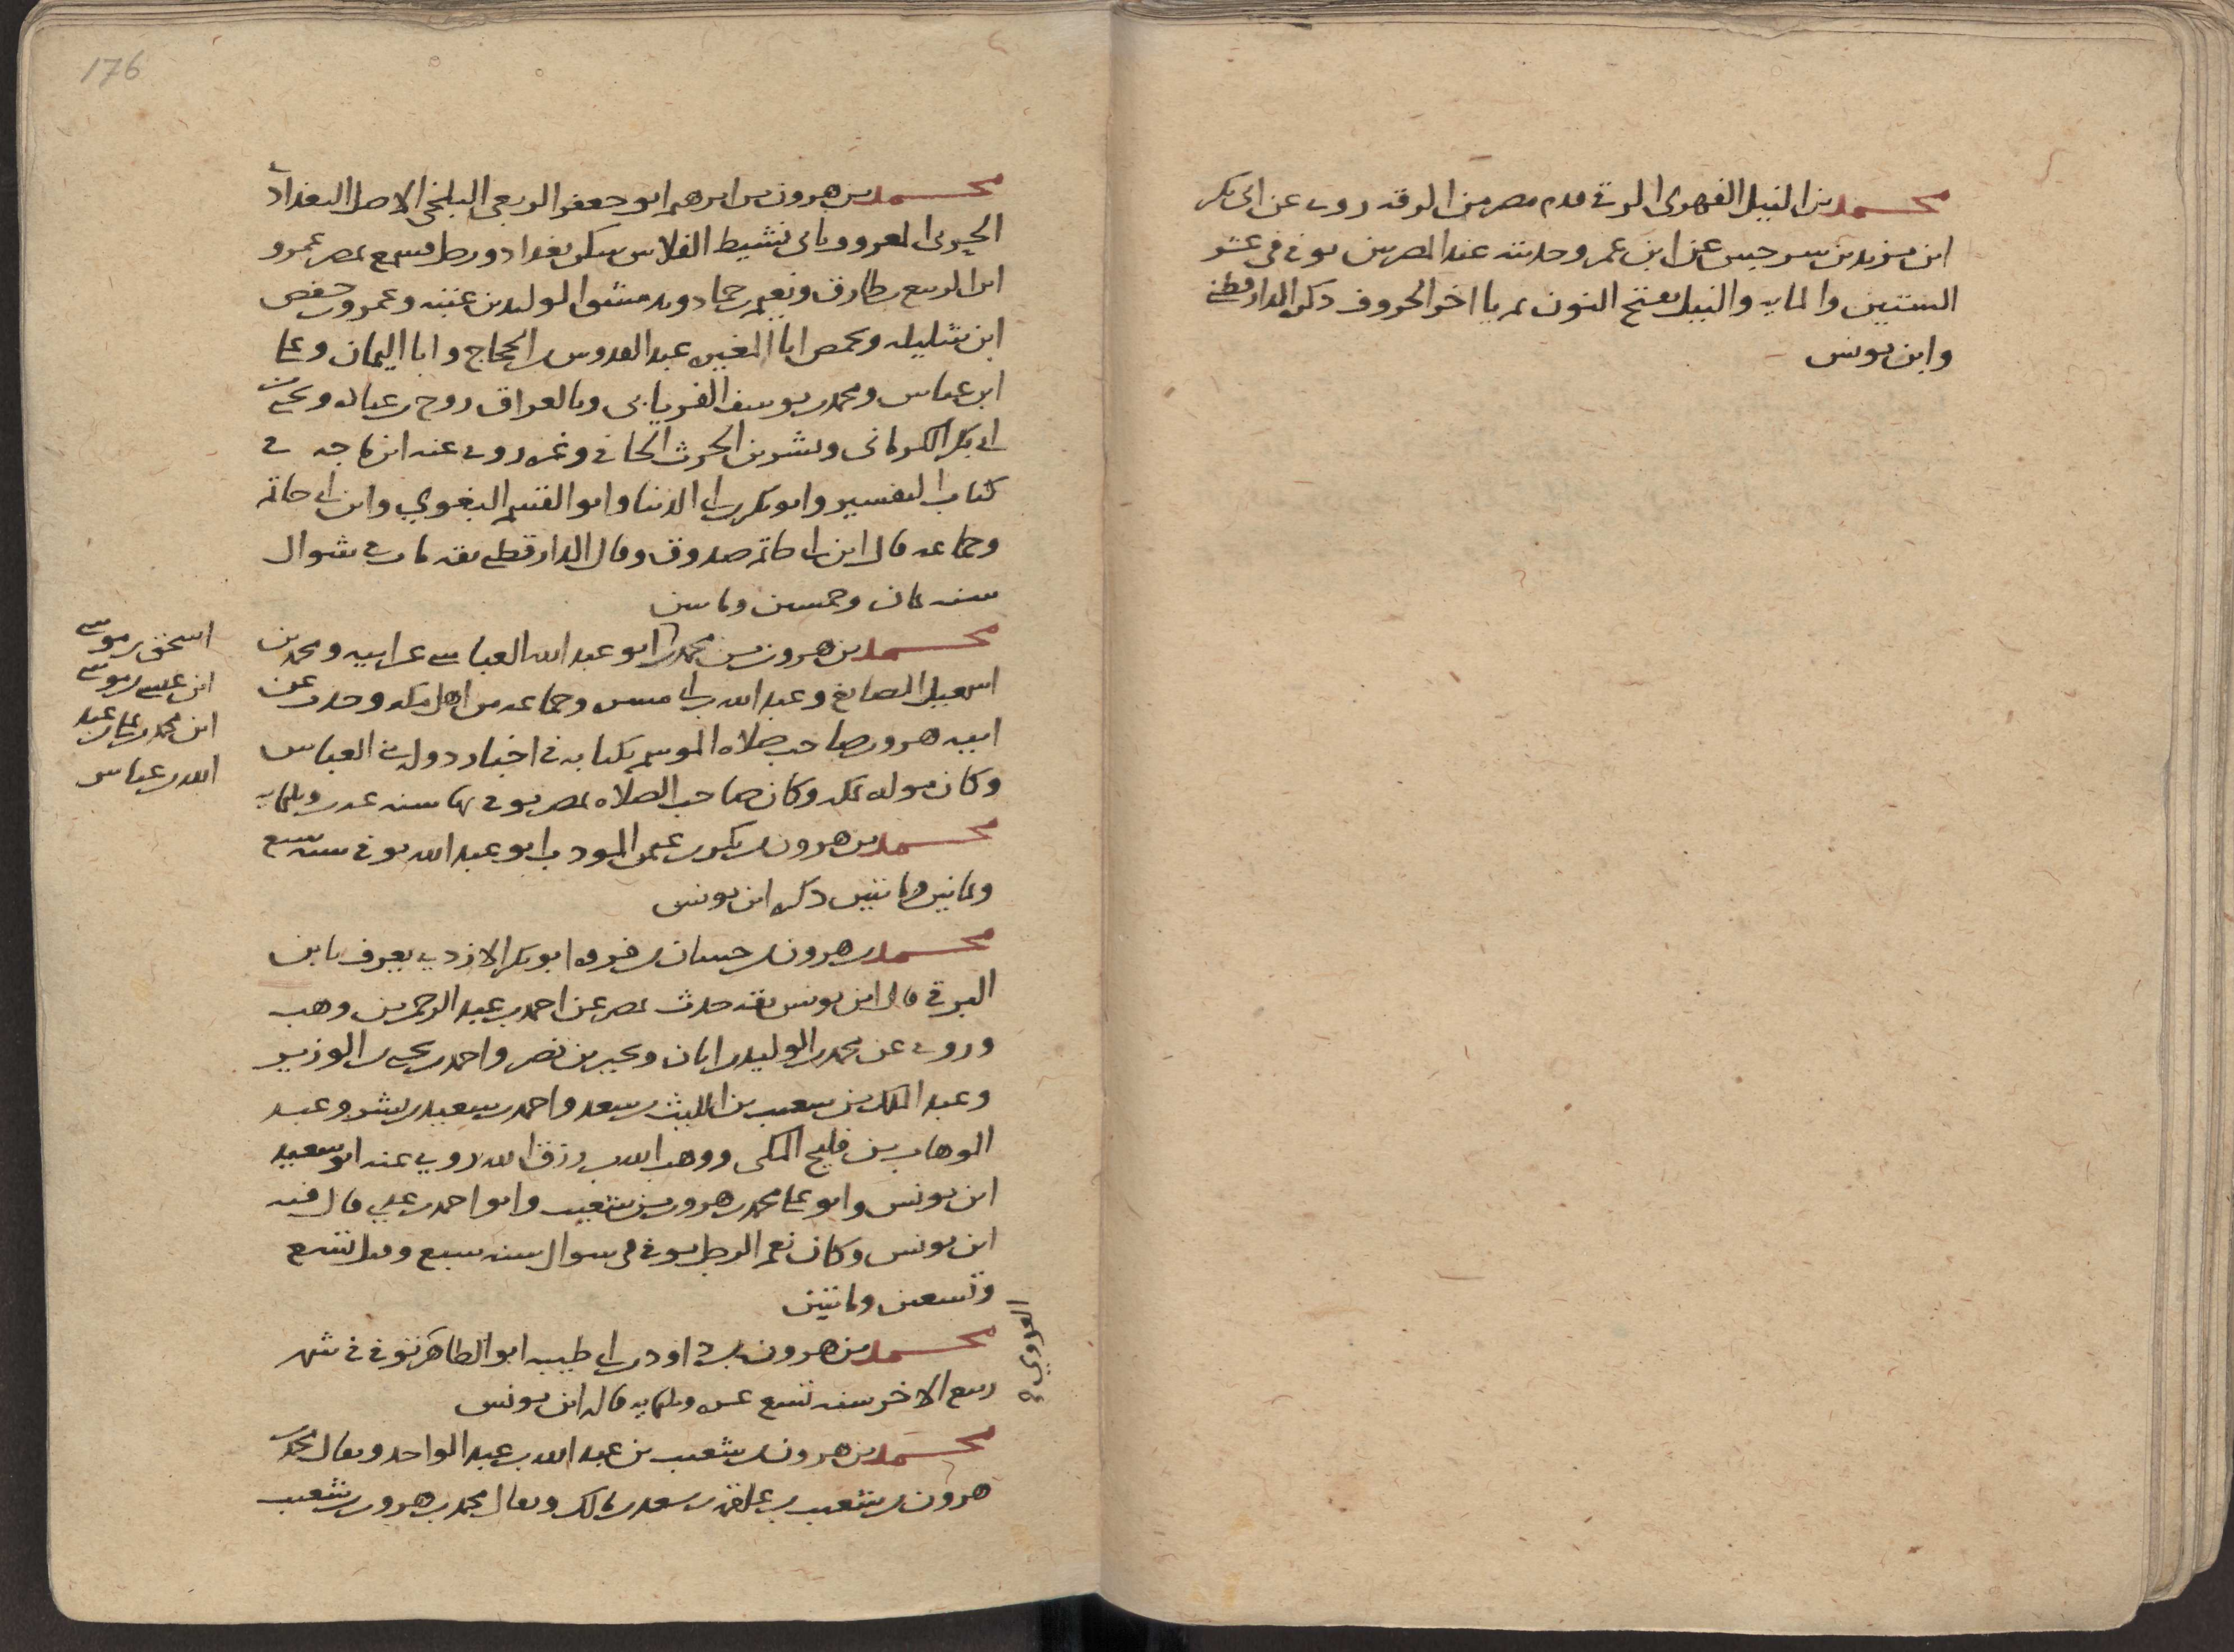 محمد بن النبيل الفهرى الرقى قدم مصر من الرقه روى عن ابى بكر
ابن مزيد بن سرجيس عن ابن عمر وحديثه عند المصرين توفى فى عشر
الستين والمايه والنبيل بفتح النون ثم يا اخر الحروف ذكره الدارقطنى
وابن يونس
176
محمد بن هرون بن ابرهيم ابو جعفر الربعى البلخى الاصل البغدادى
الحربى المعروف بابى نشيط الفلاس سكن بغداد ورحل فسمع بمصر عمرو
ابن الربيع بن طارق ونعيم بن حماد وبدمشق الوليد بن عتبه وعمرو بن حفص
ابن شليله وبحمص ابا المغيره عبد القدوس بن الحجاج وابا اليمان وعلى
ابن عياش ومحمد بن يوسف الفريابى وبالعراق روح بن عباده ويحيى بن
ابى بكر الكرمانى وبشر بن الحرث الحافى وغيره روى عنه ابن ماجه فى
كتاب التفسير وابو بكر بن ابى الدنيا وابو القسم البغوي وابن ابى حاتم
وجماعه قال ابن ابى حاتم صدوق وقال الدارقطنى ثقه مات فى شوال
سنه ثمان وخمسين وماتين
محمد بن هرون بن محمد بن ابو عبد الله العباسى عن ابيه ومحمد بن
اسحق بن موسى
ابن عيسى بن موسى
ابن محمد بن على بن عبد
الله بن عباس
اسمعيل الصايغ وعبد الله بن ابى مسره وجماعه من اهل مكه وحدث عن
ابيه هرون صاحب صلاه الموسم بكتابه فى اخبار دوله بنى العباس
وكان مولده بمكه وكان صاحب الصلاه بمصر توفى بها سنه وثلثمايه
محمد بن هرون بن بكر بن عثمن المودب ابو عبد الله توفى سنه سبع
وثمانين وماتتين ذكره ابن يونس
محمد بن هرون بن حسان بن فروه ابو بكر الازدي يعرف بابن
البرقى قال ابن يونس ثقه حدث بمصر عن احمد بن عبد الرحمن بن وهب
وروى عن محمد بن الوليد بن ابان وبحير بن نصر واحمد بن يحيى بن الوزير
وعبد الملك بن شعيب بن الليث بن سعد واحمد بن سعيد بن بشر وعبد
الوهاب بن فليح المكى ووهب الله بن رزق الله روي عنه ابو سعيد
ابن يونس وابو على محمد بن هرون بن شعيب وابو احمد بن عدي قال فيه
ابن يونس وكان نعم الرجل توفى فى شوال سنه سبع وقيل تسع
وتسعين وماتين
محمد بن هرون بن داود بن ابى طيبه ابو الطاهر توفى فى شهر
ربيع الاخر سنه تسع عشره وثلثمايه قاله ابن يونس
محمد بن هرون بن شعيب بن عبد الله بن عبد الواحد ويقال محمد بن
هرون بن شعيب بن علقمه بن سعد بن مالك ويقال محمد بن هرون بن شعيب